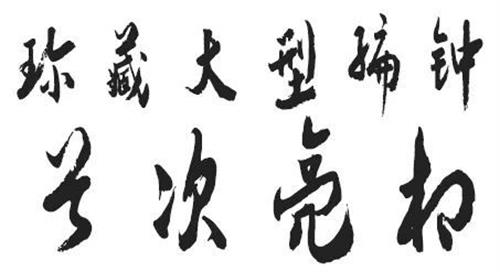 珍藏大型编钟
首次亮相